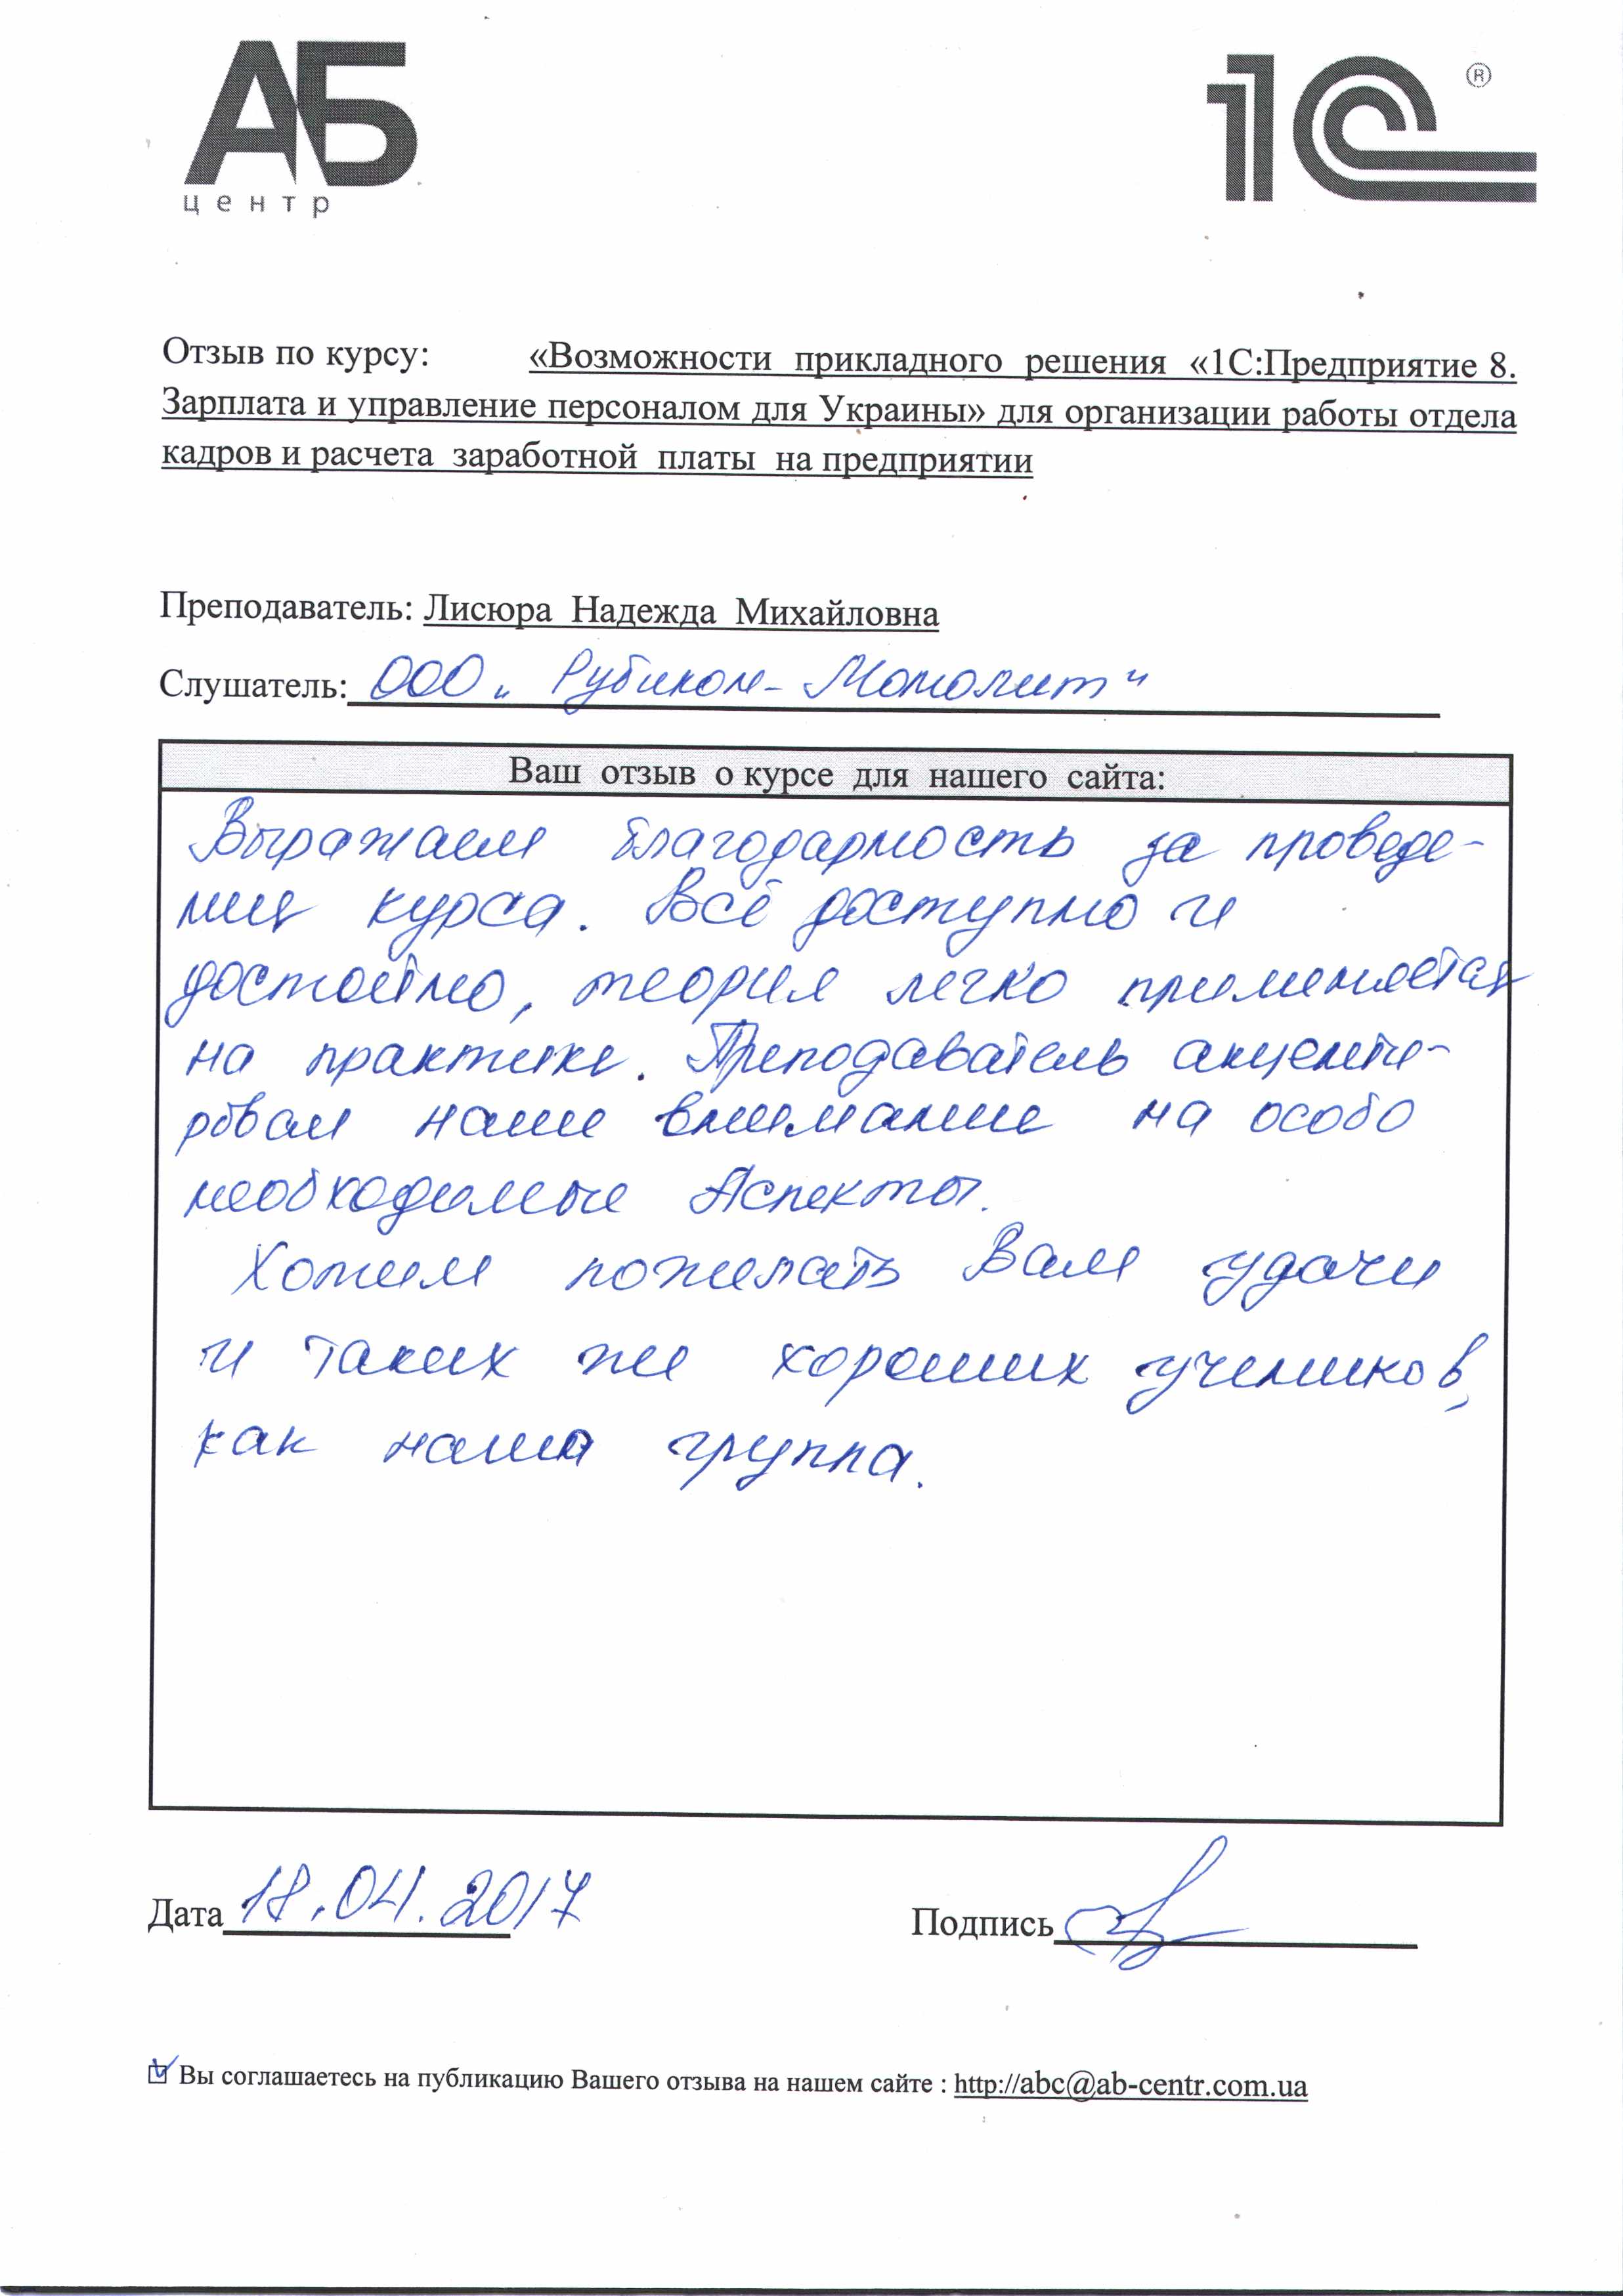 АБ
центр
1С®
Отзыв по курсу: «Возможности прикладного решения «1С:Предприятие 8.
Зарплата и управление персоналом для Украины» для организации работы отдела
кадров и расчета заработной платы на предприятии
Преподаватель: Лисюра Надежда Михайловна
Слушатель: ООО „Рубикон-Монолит"
Ваш отзыв о курсе для нашего сайта:
Выражаем благодарность за проведе-
ния курса. Всё доступно и
достойно, теория легко применяется
на практике. Преподаватель акценти-
ровал наше внимание на особо
необходимые Аспекты.
Хотим пожелать Вам удачи
и таких же хороших учеников,
как наша группа.
Дата 18.04.2017 Подпись
Вы соглашаетесь на публикацию Вашего отзыва на нашем сайте : http://abc@ab-centr.com.ua